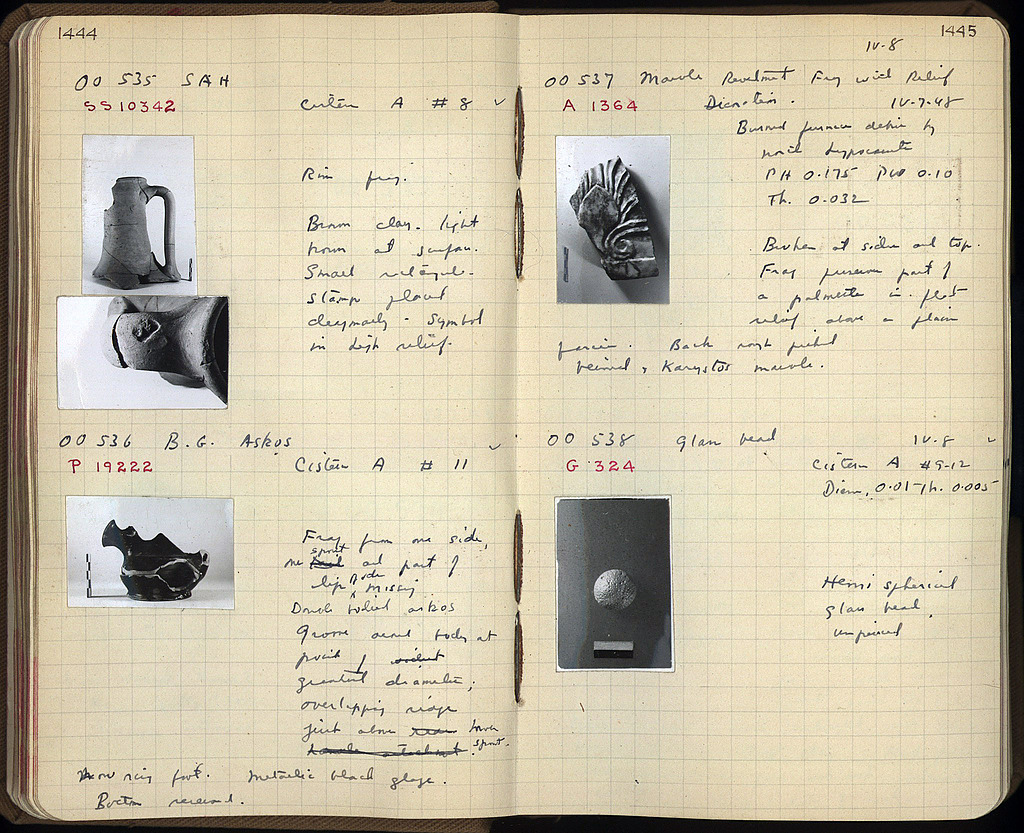 1444
OO 535 SAH
SS 10342
Cistern A # 8 ✓
Rim frag.
Brown clay, light
brown at surface.
Small rectangular
stamp placed
diagonally - Symbol
in high relief.
OO 536 B.G. Askos
P 19222
✓
Cistern A # 11
Frag from one side,
spout
and part of
lip missing.
Double bodied askos
Groove around body at
point of
greatest diameter;
overlapping ridge
just above lower
spout.
ring foot. Metallic black glaze.
Bottom reserved.
1445
IV-8
OO 537 Marble Revetment Frag with Relief
A 1364
Decoration. IV-7-48
Burned furnace debris by
north hypocaust
PH 0.175 PW 0.10
Th. 0.032
Broken at sides and top.
Frag preserves part of
a palmette in flat
relief above a plain
fascia. Back rough picked
Karystos marble.
OO 538 Glass bead IV-8 ✓
G 324
Cistern A #9-12
Diam. 0.01 Th. 0.005
Hemispherical
glass bead,
unpierced